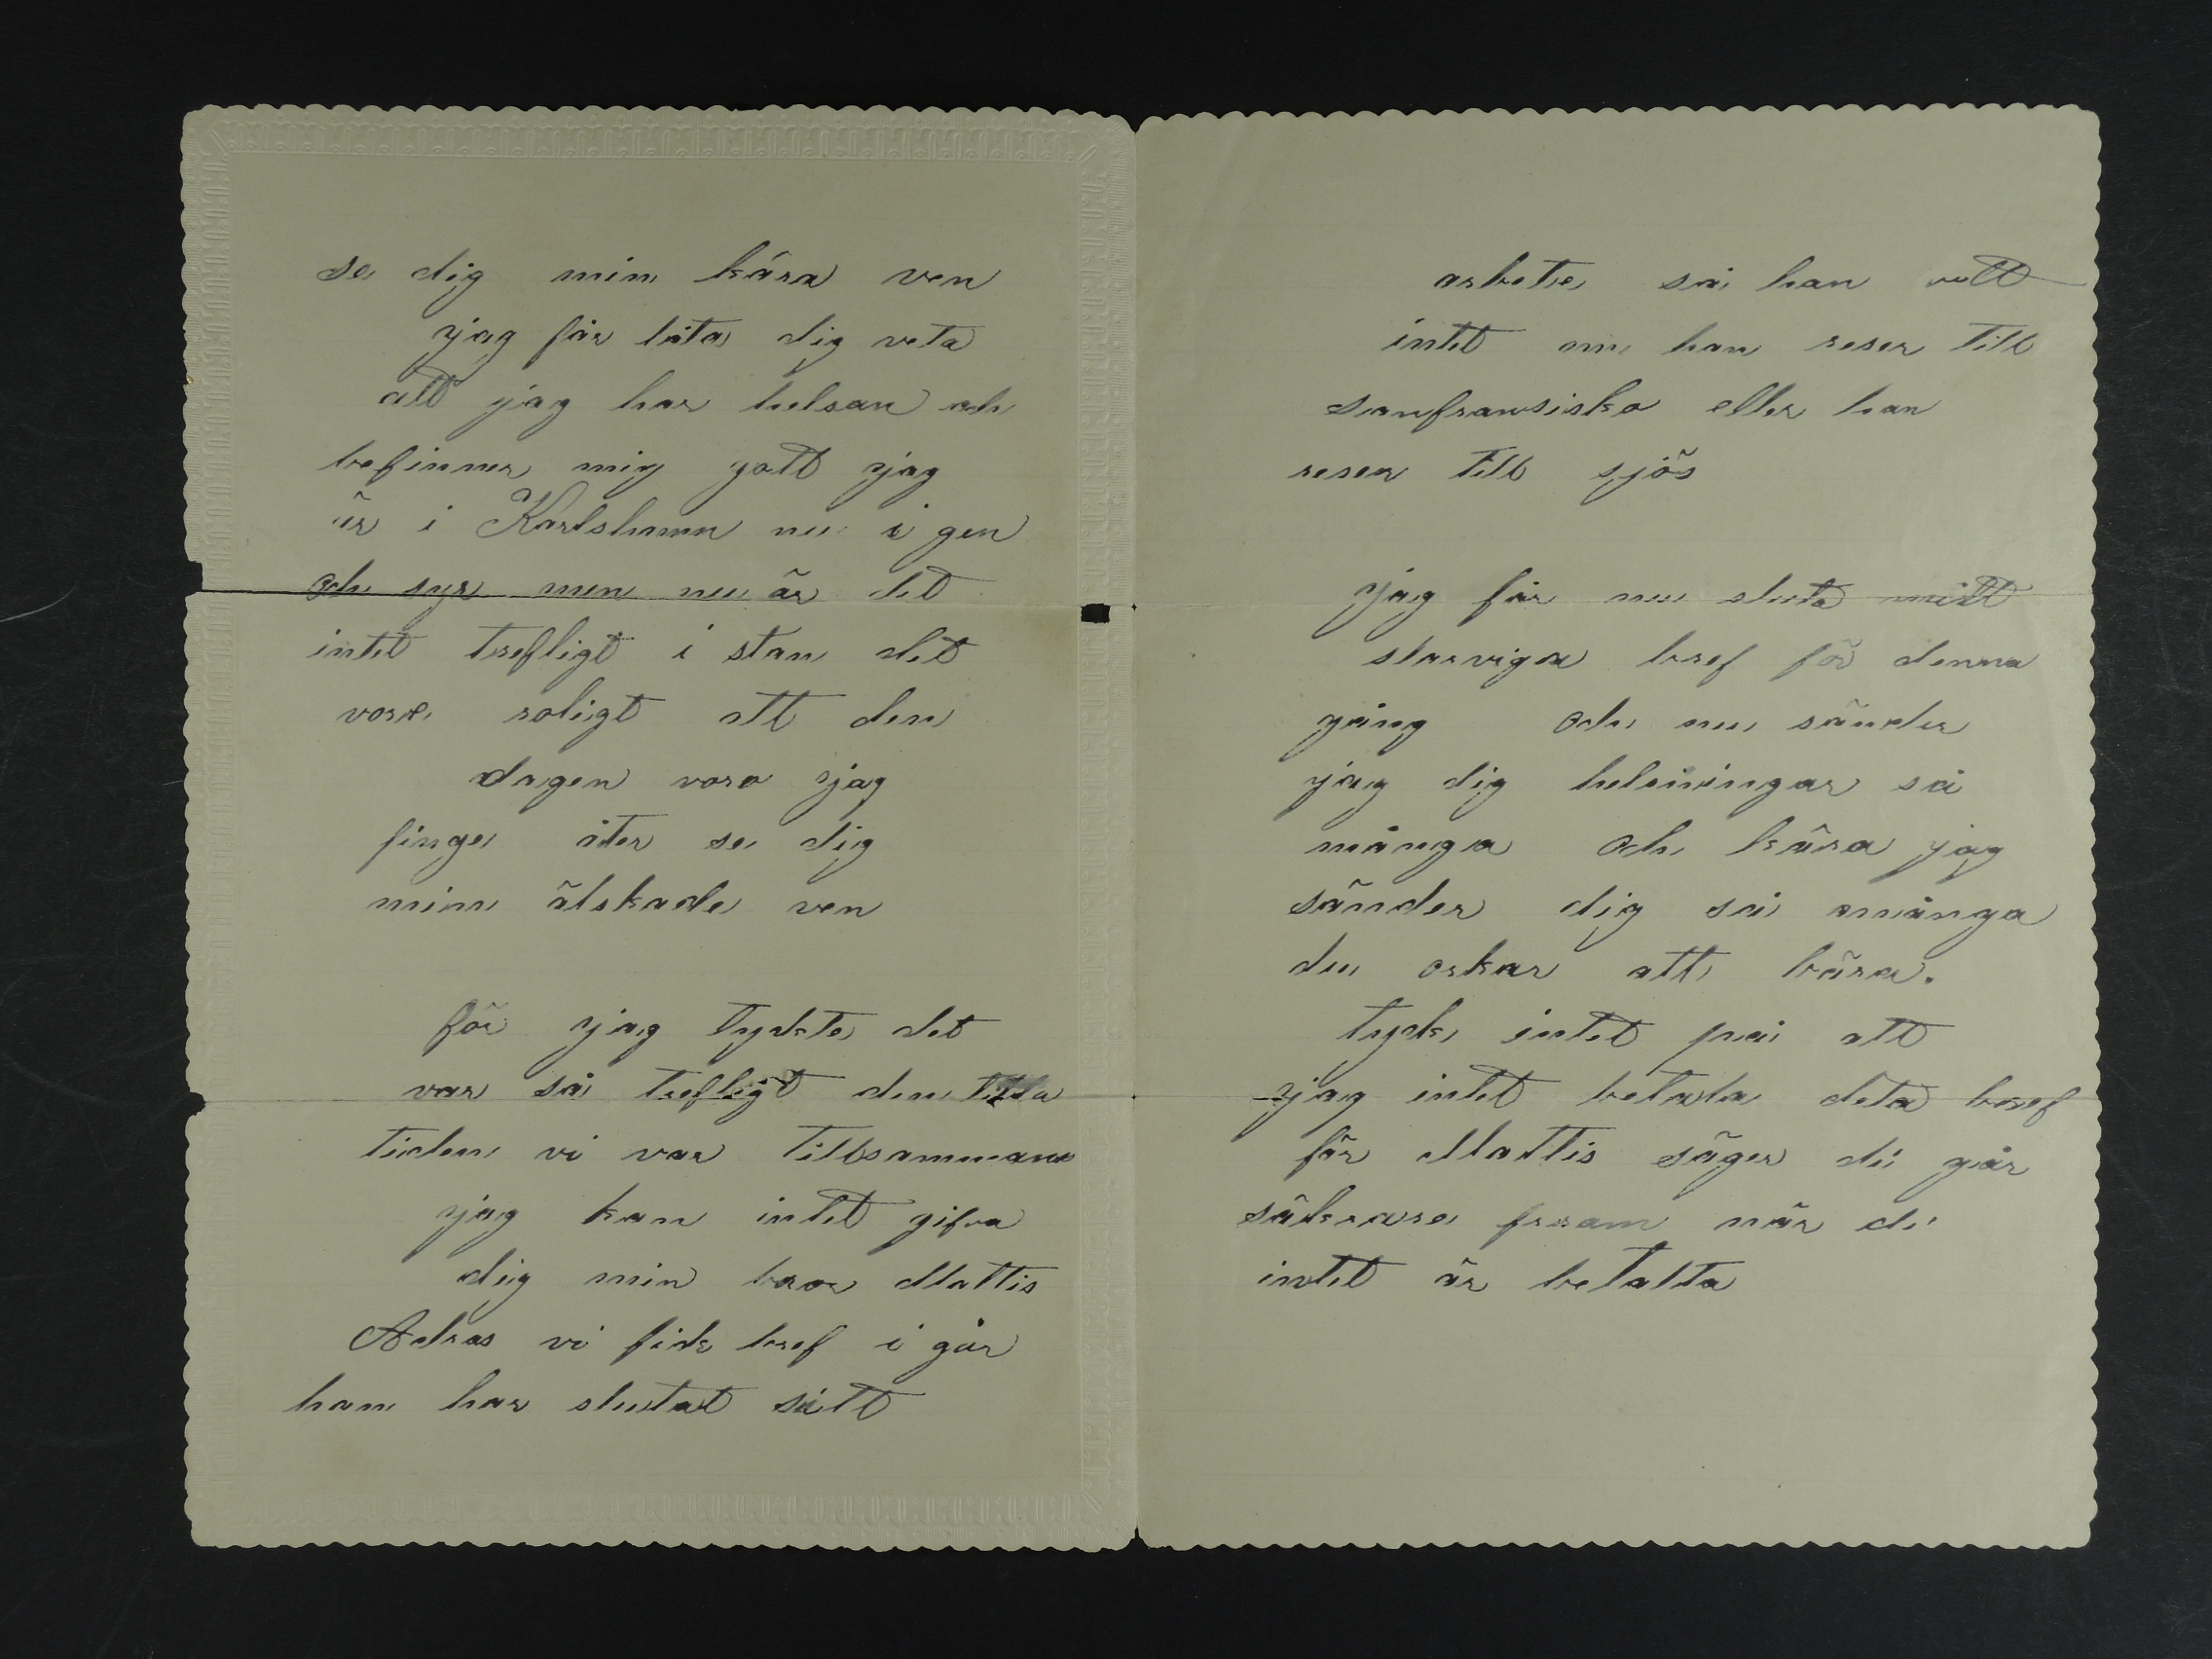 se dig min kära ven
jag får låta dig veta
att jag har helsan och
befinner mig gott jag
är i Karlshamn nu i gen
och syr men nu är det
intet trefligt i stan det
vore roligt att den
dagen vore jag
finge åter se dig
min älskade ven
för jag tyckte det
var så trefligt den lilla
tiden vi var tillsammans
jag kan intet gifva
dig min bror Mattis
Adras vi fick bref i går
han har slutat sitt
arbete så han vett
intet om han reser till
sanfransisko eller han
reser till sjös
jag får nu sluta mitt
slarviga bref för denna
gång och nu sänder
jag dig helsningar så
många och kära jag
sänder dig så många
du orkar att bära.
tyck intet på att
jag intet betala deta bref
för Mattis säger di går
säkrare fram när di
intet är betalta